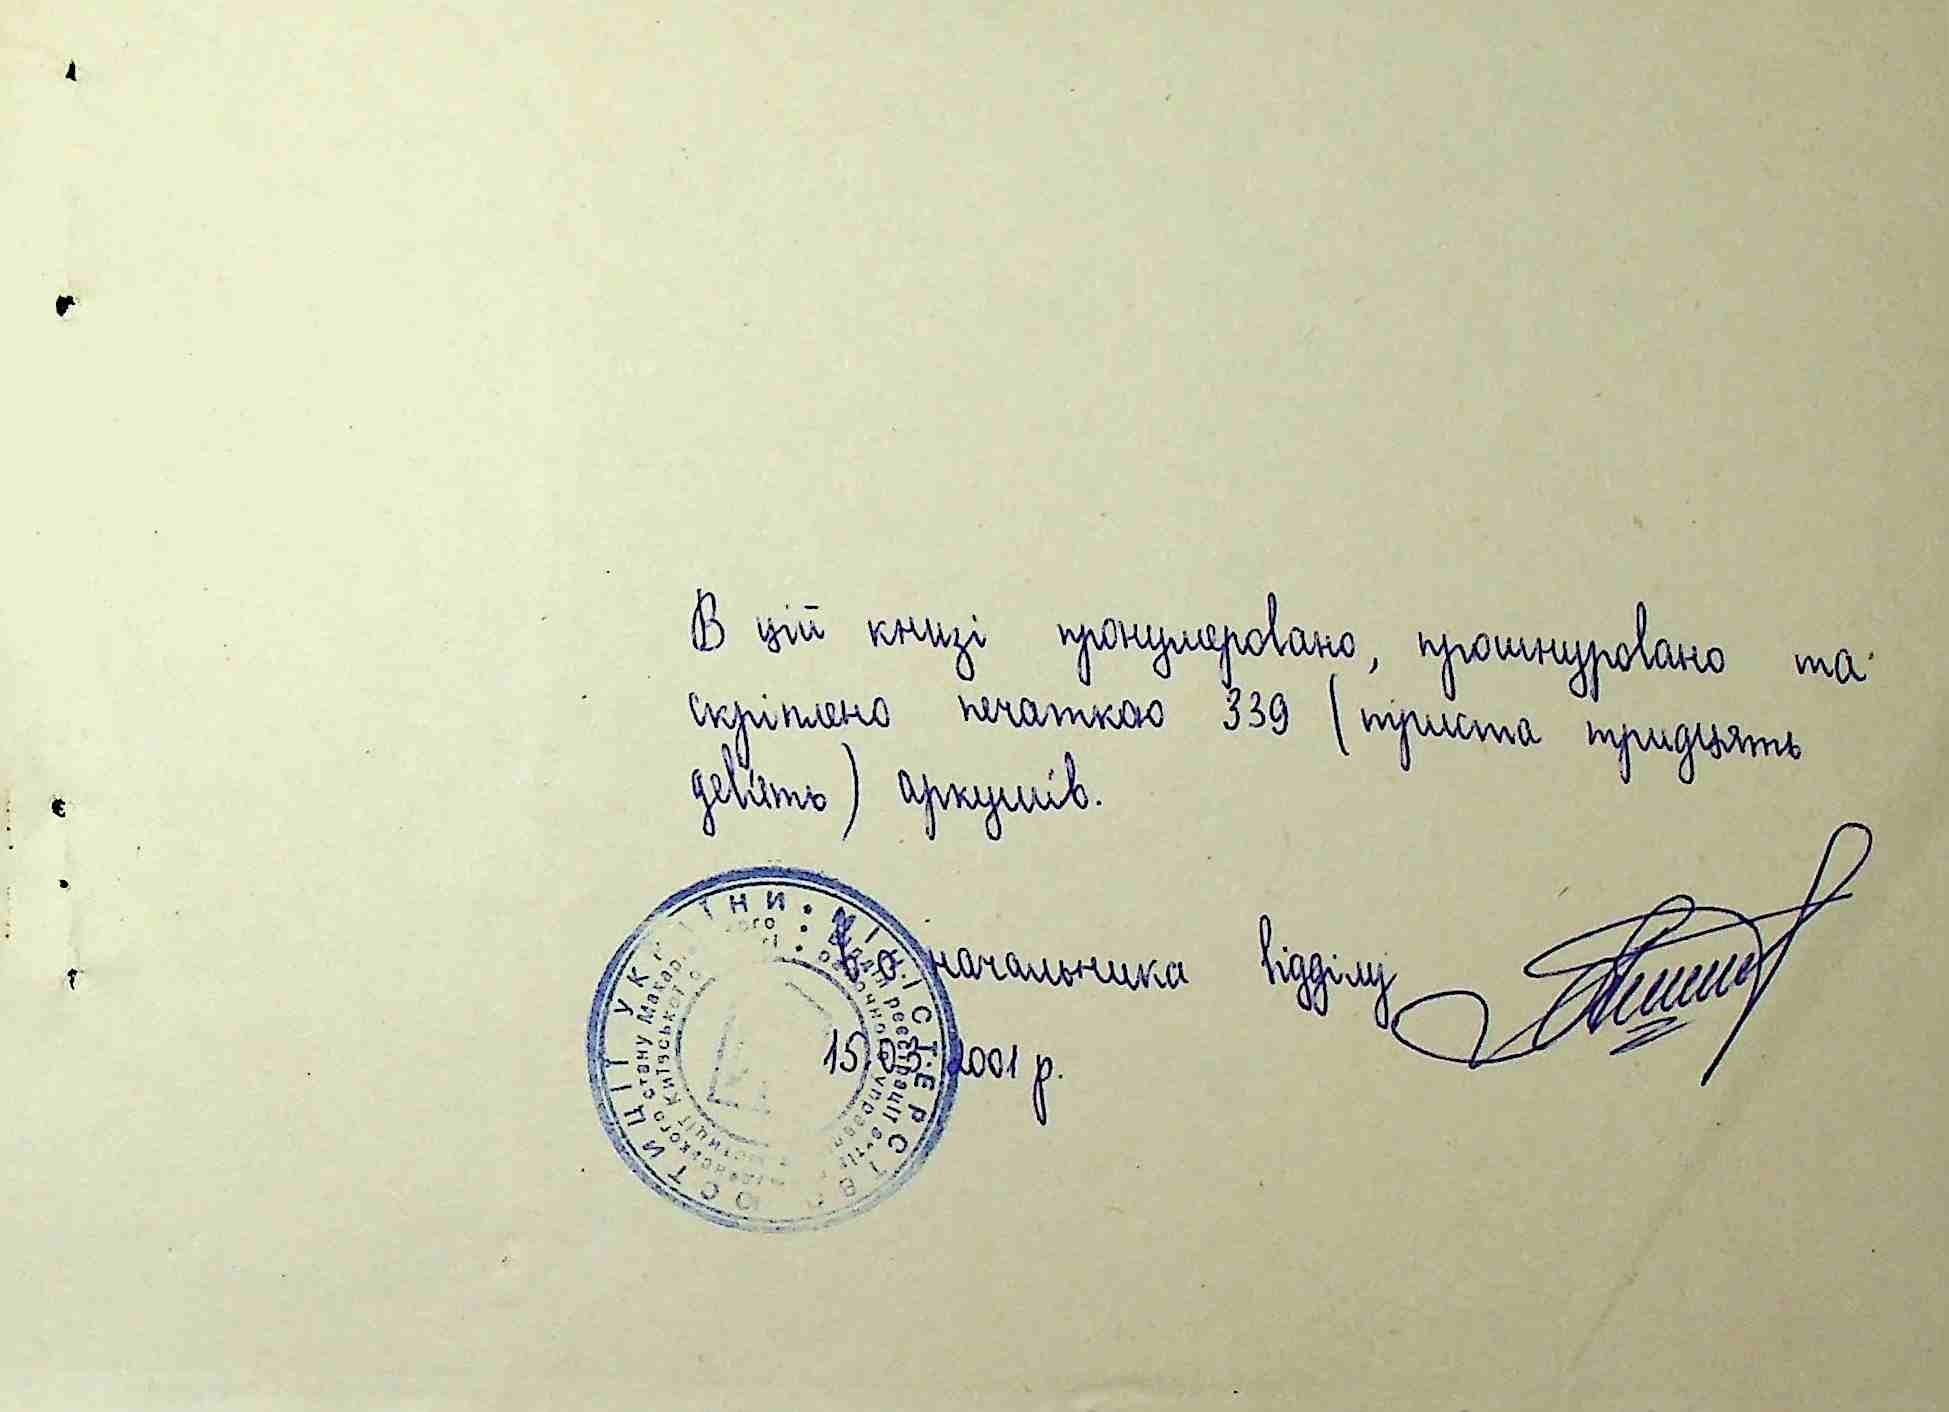 В цій книзі пронумеровано, прошнуровано та
скріплено печаткою 339 (триста тридцять
дев'ять) аркушів.
В.о. начальника відділу
15.03.2001 р.
МІНІСТЕРСТВО ЮСТИЦІЇ УКРАЇНИ
Відділ реєстрації актів громадянського стану Макарівського
районного управління юстиції Київської області